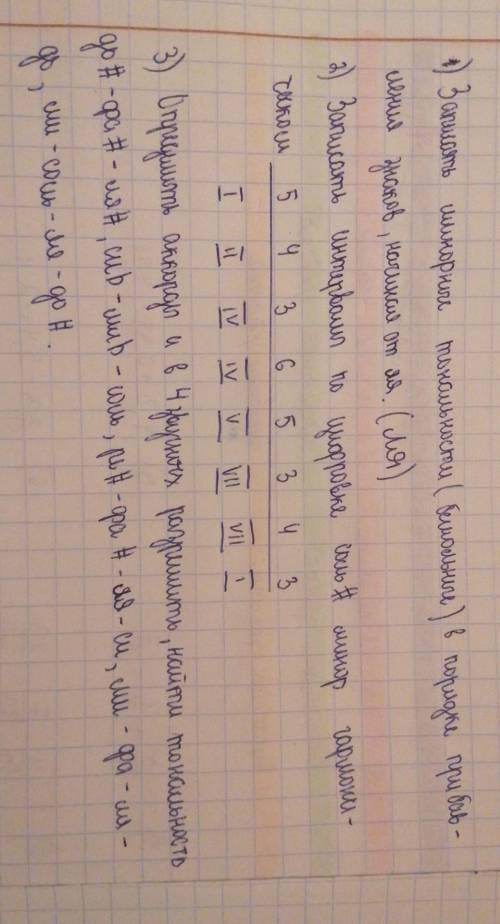 1) Записать минорные тональности (бемольные) в порядке прибав-
ления знаков, начиная от ля. (ЛЯ)
2) Записать интервалы по цифровке соль # минор гармони-
чески 5 4 3 6 5 3 4 3
I II IV IV V VII VII I
3) Определить аккорды и в 4 звучных разрешить, найти тональность
до # - фа # - ля #, сиb - миb - соль, ре # - фа # - ля - си, ми - фа - ля -
до, ми - соль - ля - до #.